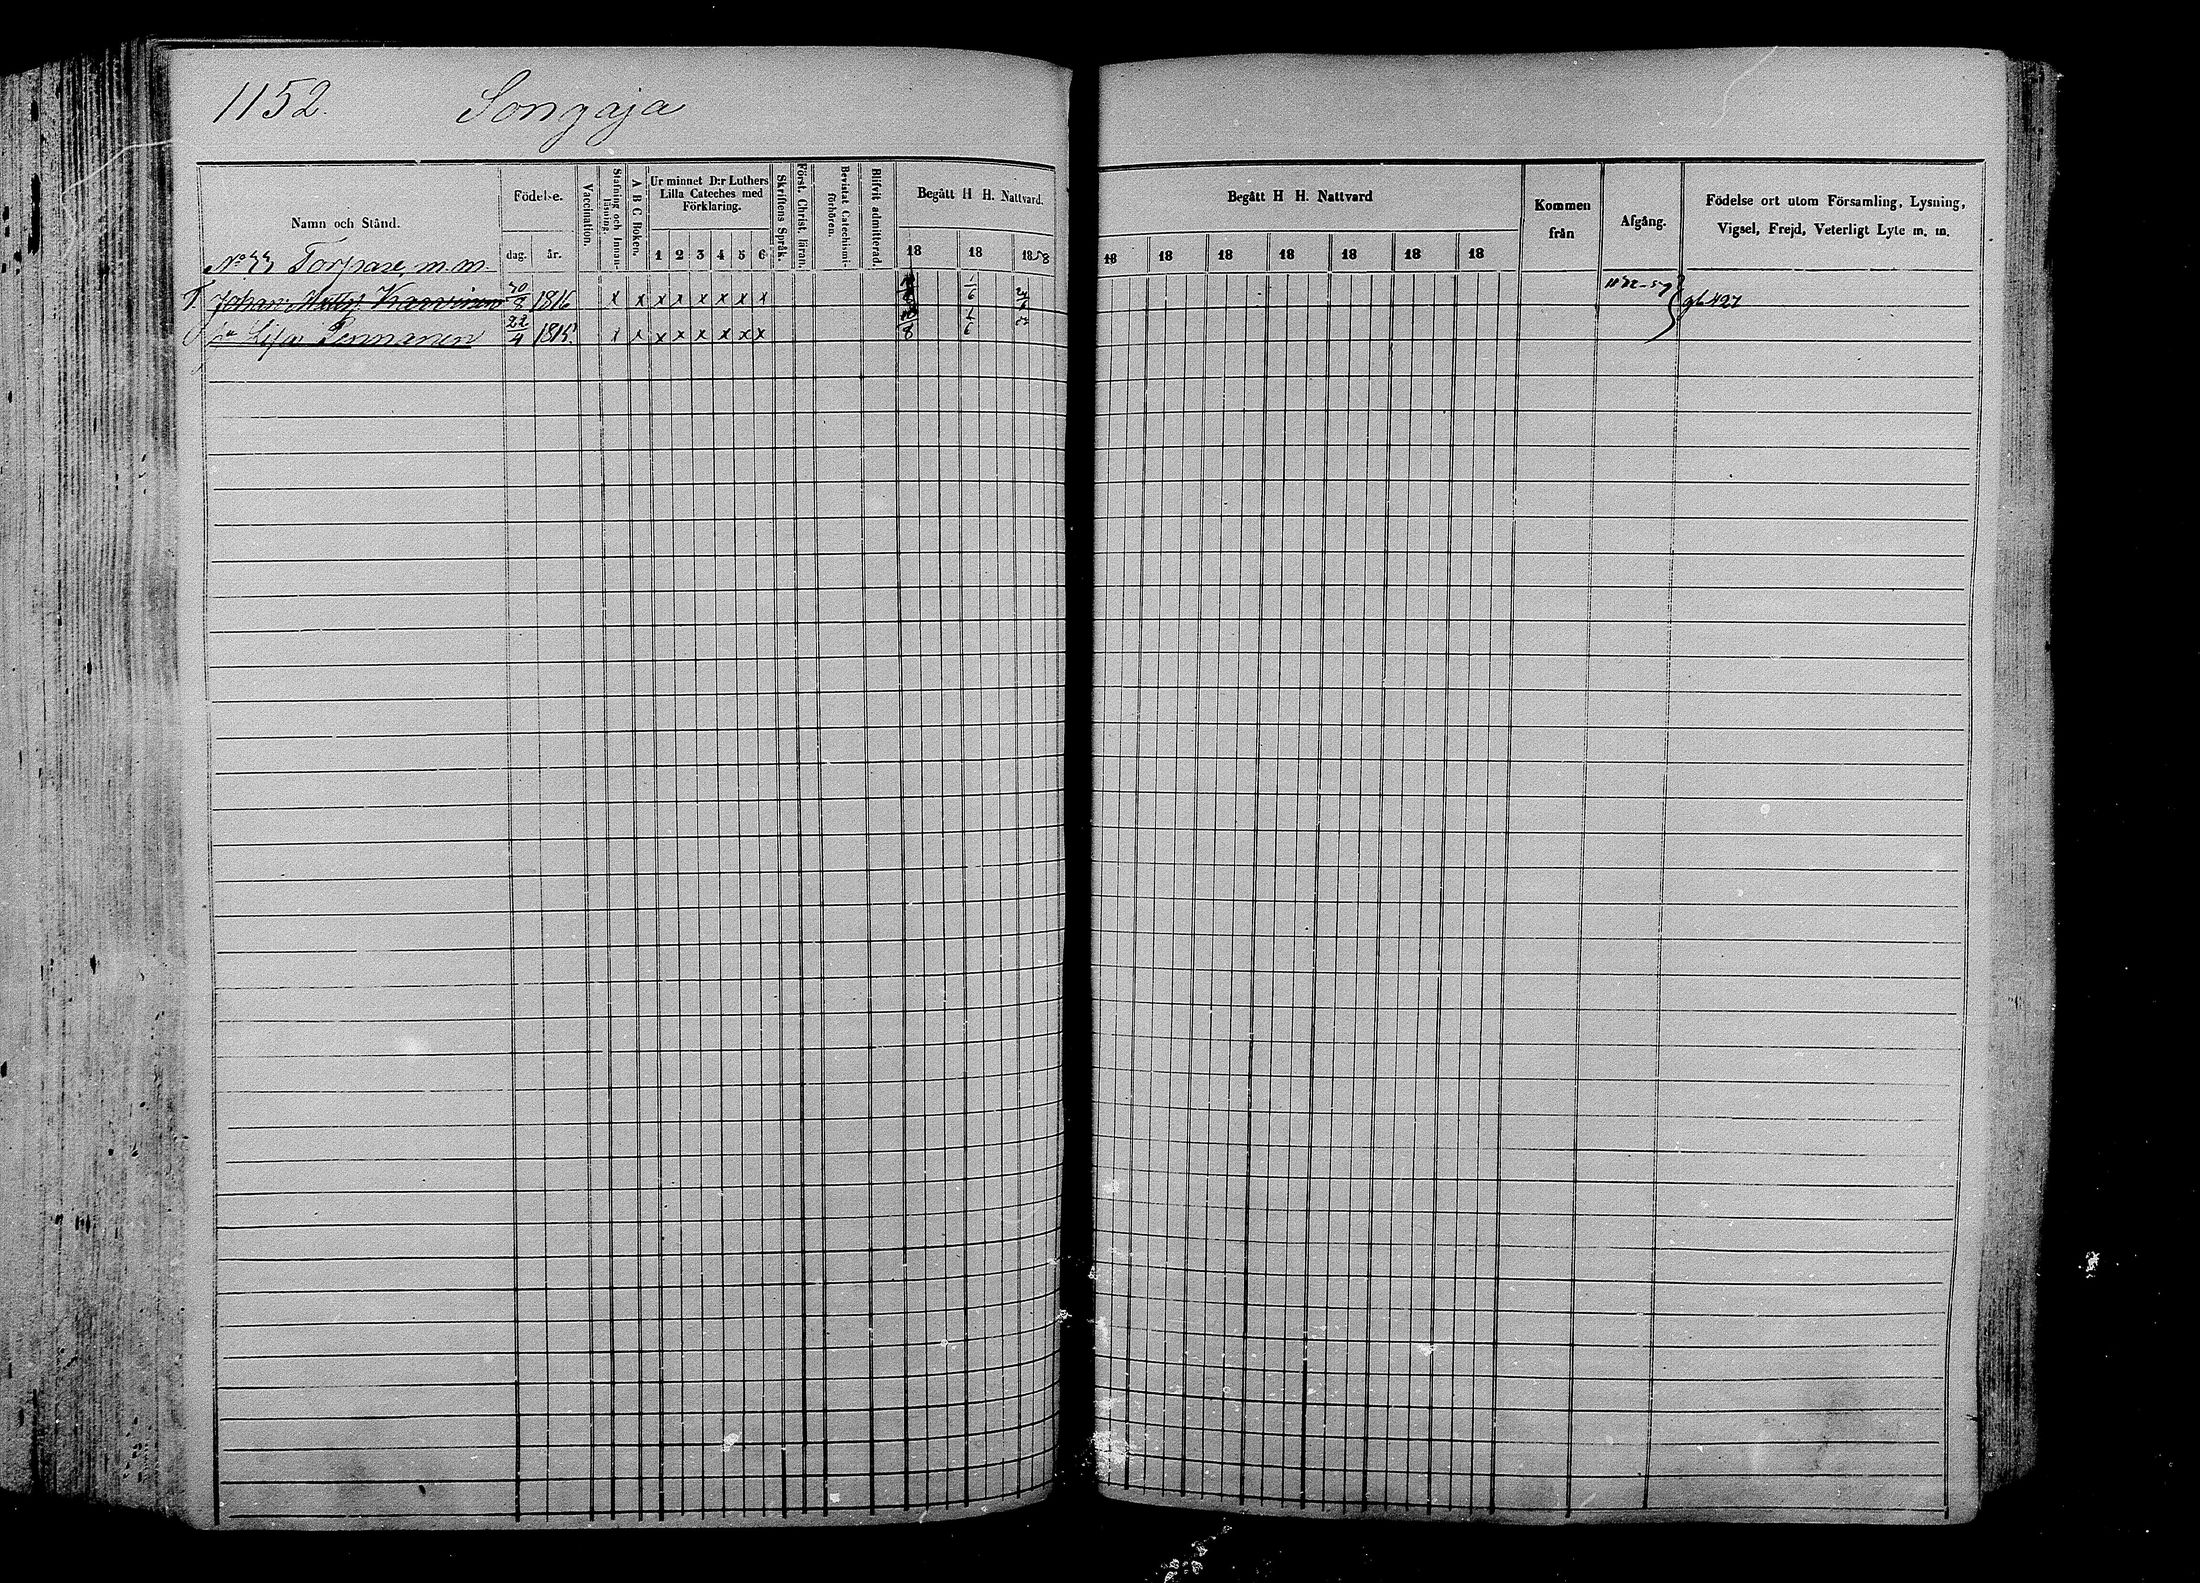 1152. Songaja
Namn och Stånd.
Födelse.
dag. år.
Vaccination.
Stafning och Innanläsning.
A B C Boken.
Ur minnet D:r Luthers Lilla Cateches med Förklaring.
1 2 3 4 5 6
Skriftens Språk.
Först. Christ. läran.
Bevistat Catechismiförhören.
Blifvit admitterad.
Begått H H. Nattvard.
18 18 1858
Begått H H. Nattvard
18 18 18 18 18 18 18
Kommen från
Afgång.
Födelse ort utom Församling, Lysning, Vigsel, Frejd, Veterligt Lyte m. m.
No Torpare, m.m.
T. Johan Matts 1816 x x x x x x x x 1/6 gb 427
Lisa Pennanen 22/4 1815 x x x x x x x x 1/6